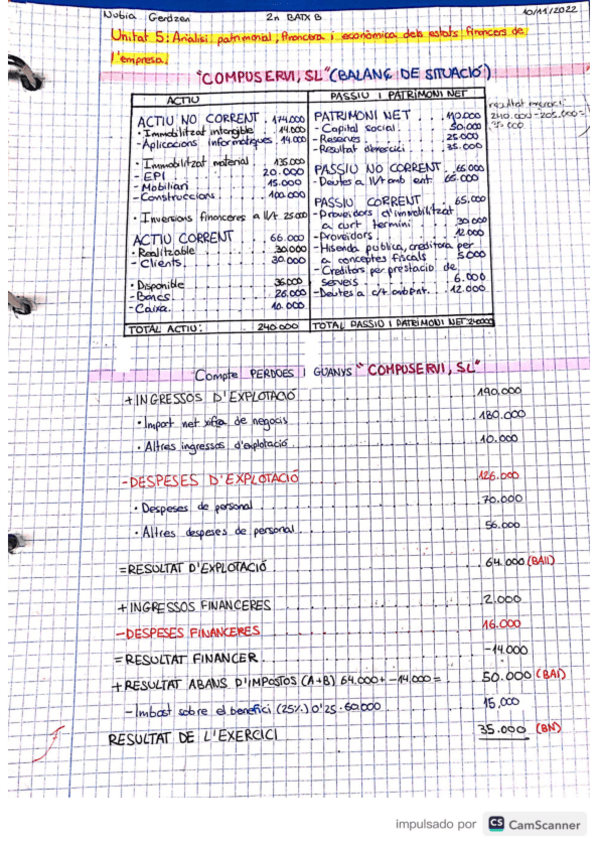 Nubia Gerdzen 2n BATX B 10/11/2022
Unitat 5: Anàlisi patrimonial, financera i econòmica dels estats financers de
l'empresa.
"COMPUSERVI, SL" (BALANÇ DE SITUACIÓ)
ACTIU
ACTIU NO CORRENT . 174.000
• Immobilitzat intangible . 14.000
- Aplicacions informàtiques 14.000
• Immobilitzat material 135.000
- EPI 20.000
- Mobiliari 15.000
- Construccions 100.000
• Inversions financeres a ll/t. 25.000
ACTIU CORRENT 66.000
• Realitzable 30.000
- Clients 30.000
• Disponible 36.000
- Bancs 26.000
- Caixa 10.000
TOTAL ACTIU: 240.000
PASSIU I PATRIMONI NET
PATRIMONI NET 110.000
- Capital social 50.000
- Reserves 25.000
- Resultat d'exercici 35.000
PASSIU NO CORRENT 65.000
- Deutes a ll/t amb ent. 65.000
PASSIU CORRENT 65.000
- Proveïdors d'immobilitzat
a curt termini 30.000
- Proveïdors 12.000
- Hisenda pública, creditora per
a conceptes fiscals 5000
- Creditors per prestació de
serveis 6.000
- Deutes a c/t amb ent. 12.000
TOTAL PASSIU I PATRIMONI NET 240000
resultat exercici
240.000 - 205.000 =
35.000
Compte PERDUES I GUANYS "COMPUSERVI, SL"
+ INGRESSOS D'EXPLOTACIÓ 190.000
• Import net xifra de negocis 180.000
• Altres ingressos d'explotació 10.000
- DESPESES D'EXPLOTACIÓ 126.000
• Despeses de personal 70.000
• Altres despeses de personal 56.000
= RESULTAT D'EXPLOTACIÓ 64.000 (BAII)
+ INGRESSOS FINANCERES 2.000
- DESPESES FINANCERES 16.000
= RESULTAT FINANCER -14.000
+ RESULTAT ABANS D'IMPOSTOS (A+B) 64.000 + -14.000 = 50.000 (BAI)
- Imbost sobre el benefici (25%) 0'25 · 60.000 15,000
RESULTAT DE L'EXERCICI 35.000 (BN)
impulsado por CS CamScanner